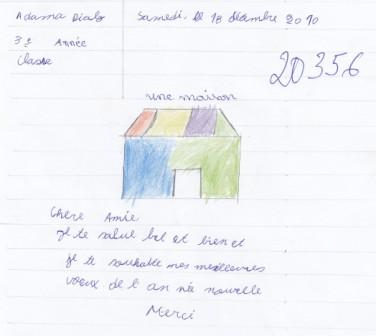 Adama Dialo Samedi, le 18 décembre 2010
3e Année
Classe
20356
une maison
Chere Amie
je te salut bel et bien et
je te souhaite mes meilleures
voeux de l an née nouvelle
Merci